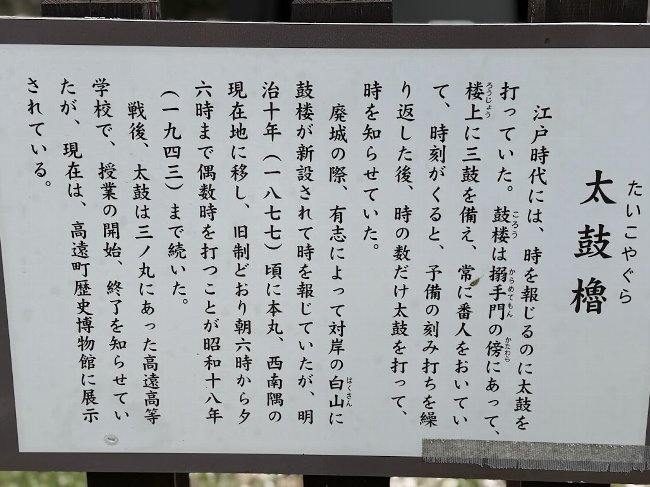 太鼓櫓
たいこやぐら
江戸時代には、時を報じるのに太鼓を
打っていた。鼓楼は搦手門の傍にあって、
ころう
からめてもん
かたわら
楼上に三鼓を備え、常に番人をおいてい
ろうじょう
て、時刻がくると、予備の刻み打ちを繰
り返した後、時の数だけ太鼓を打って、
時を知らせていた。
廃城の際、有志によって対岸の白山に
はくさん
鼓楼が新設されて時を報じていたが、明
治十年(一八七七)頃に本丸、西南隅の
現在地に移し、旧制どおり朝六時から夕
六時まで偶数時を打つことが昭和十八年
(一九四三)まで続いた。
戦後、太鼓は三ノ丸にあった高遠高等
学校で、授業の開始、終了を知らせてい
たが、現在は、高遠町歴史博物館に展示
されている。